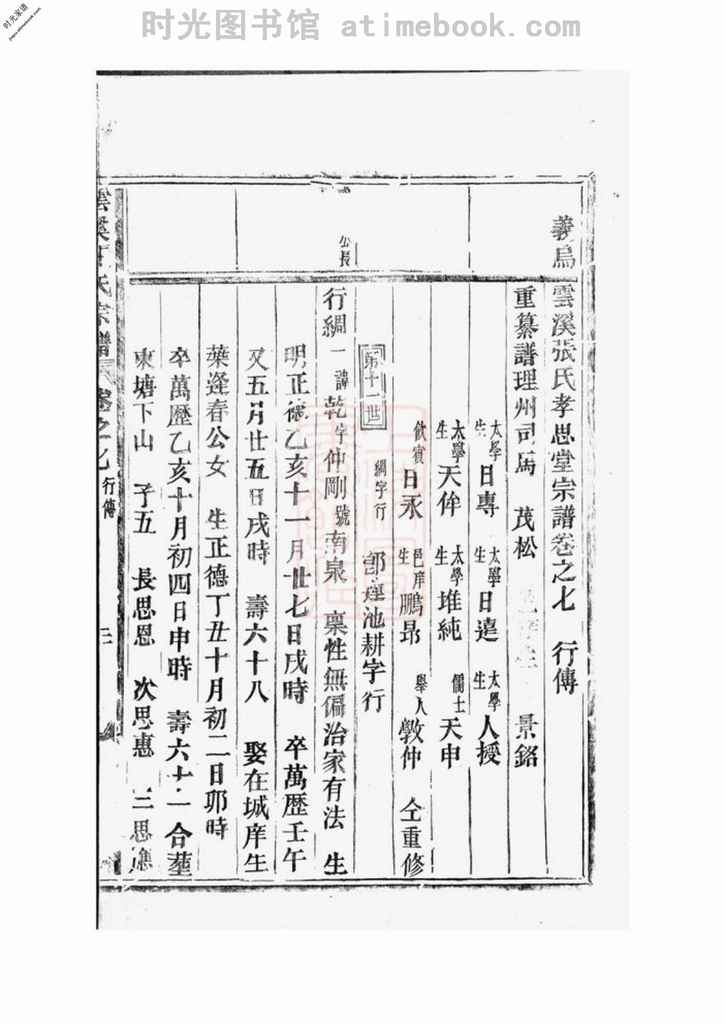 时光图书馆 atimebook.com
时光家谱
義烏雲溪張氏孝思堂宗譜卷之七 行傳
重纂譜理州司馬 茂松 景銘
太學生 日專 太學生 日遠 太學生 人授
太學生 天侔 太學生 堆純 儒士 天申
飲賓 日永 邑庠生 鵬昂 舉人 斆仲 仝重修
第十一世 綢字行 蓮池耕字行
公長
行綢一 諱乾 字仲剛 號南泉 稟性無偏治家有法 生
明正德乙亥十一月廿七日戌時 卒萬歷壬午
又五月廿五日戌時 壽六十八 娶在城庠生
葉逢春公女 生正德丁丑十月初二日卯時
卒萬歷乙亥十月初四日申時 壽六十一 合塟
東塘下山 子五 長思恩 次思惠 三思
雲溪 氏宗譜 卷之七 行傳